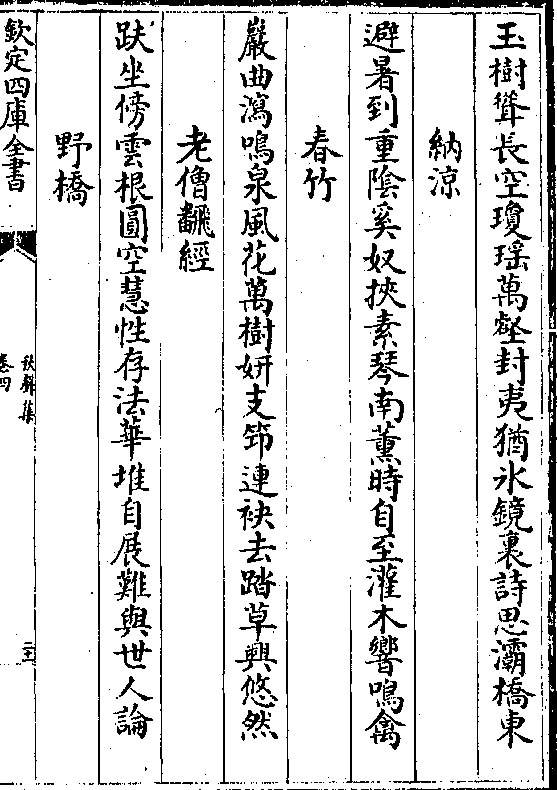 玉樹聳長空瓊瑤萬壑封夷猶氷鏡裏詩思灞橋東
納涼
避暑到重陰奚奴挾素琴南薰時自至灌木響鳴禽
春竹
巖曲瀉鳴泉風花萬樹妍支笻連袂去踏草興悠然
老僧飜經
趺坐傍雲根圓空慧性存法華堆自展難與世人論
野橋
欽定四庫全書
卷四